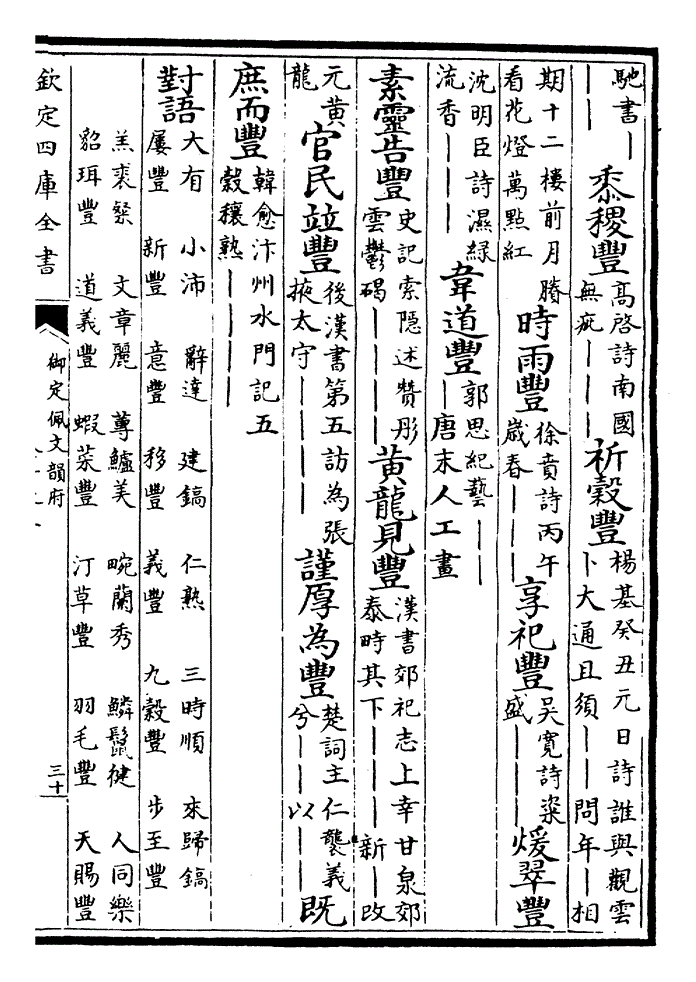 馳書｜｜｜黍稷豐高啓詩南國無疵｜｜｜祈穀豐楊基癸丑元日詩誰與觀雲卜大通且須｜｜問年｜相
期十二樓前月賸看花燈萬點紅時雨豐徐賁詩丙午歲春｜｜｜享祀豐吳寬詩粢盛｜｜｜煖翠豐
沈明臣詩濕緑流香｜｜｜韋道豐郭思紀藝｜｜｜唐末人工畫
素靈告豐史記索隠述贊彤雲鬱碭｜｜｜｜黄龍見豐漢書郊祀志上幸甘泉郊泰畤其下｜｜｜新｜改
元黄龍官民竝豐後漢書第五訪為張掖太守｜｜｜｜謹厚為豐楚詞主仁襲義兮｜｜｜以
既庶而豐韓愈汴州水門記五穀穰熟｜｜｜｜
對語大有 小沛 辭達 建鎬 仁熟 三時順 來歸鎬
屢豐 新豐 意豐 移豐 義豐 九穀豐 步至豐
羔裘粲 文章麗 蓴鱸美 畹蘭秀 鱗鬛健 人同樂
貂珥豐 道義豐 蝦菜豐 汀草豐 羽毛豐 天賜豐
欽定四庫全書
御定佩文韻府
三十